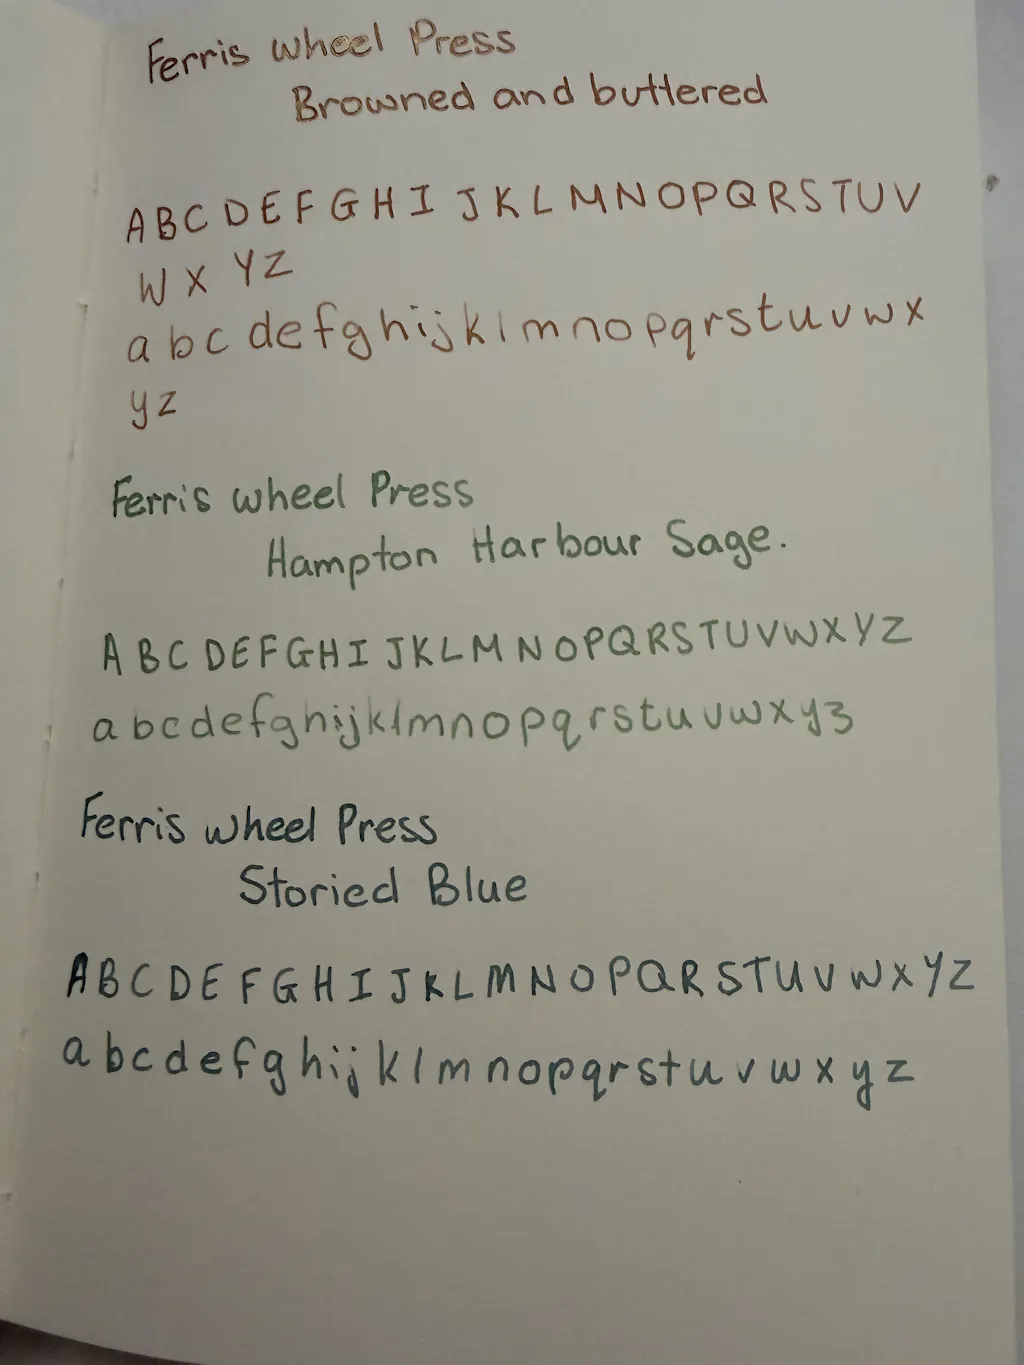 Ferris wheel Press
Browned and buttered
A B C D E F G H I J K L M N O P Q R S T U V
W X Y Z
a b c d e f g h i j k l m n o p q r s t u v w x
y z
Ferris wheel Press
Hampton Harbour Sage.
A B C D E F G H I J K L M N O P Q R S T U V W X Y Z
a b c d e f g h i j k l m n o p q r s t u v w x y z
Ferris wheel Press
Storied Blue
A B C D E F G H I J K L M N O P Q R S T U V W X Y Z
a b c d e f g h i j k l m n o p q r s t u v w x y z